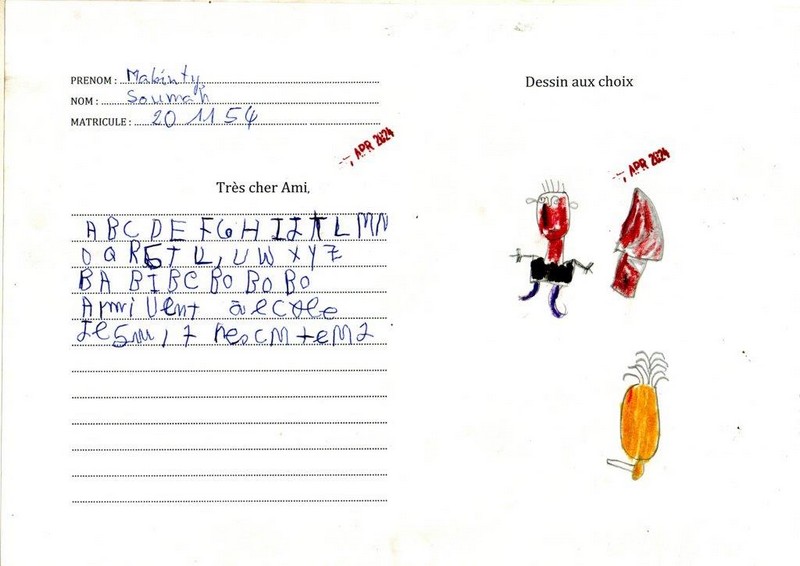 PRENOM : Mabinty
NOM : Soumah
MATRICULE : 20 11 54
APR 2024
Très cher Ami,
A B C D E F G H I J K L M N
O Q R S T U, U W X Y Z
BA BI BC BO BO BO
Ami Vent à ecole
Dessin aux choix
APR 2024